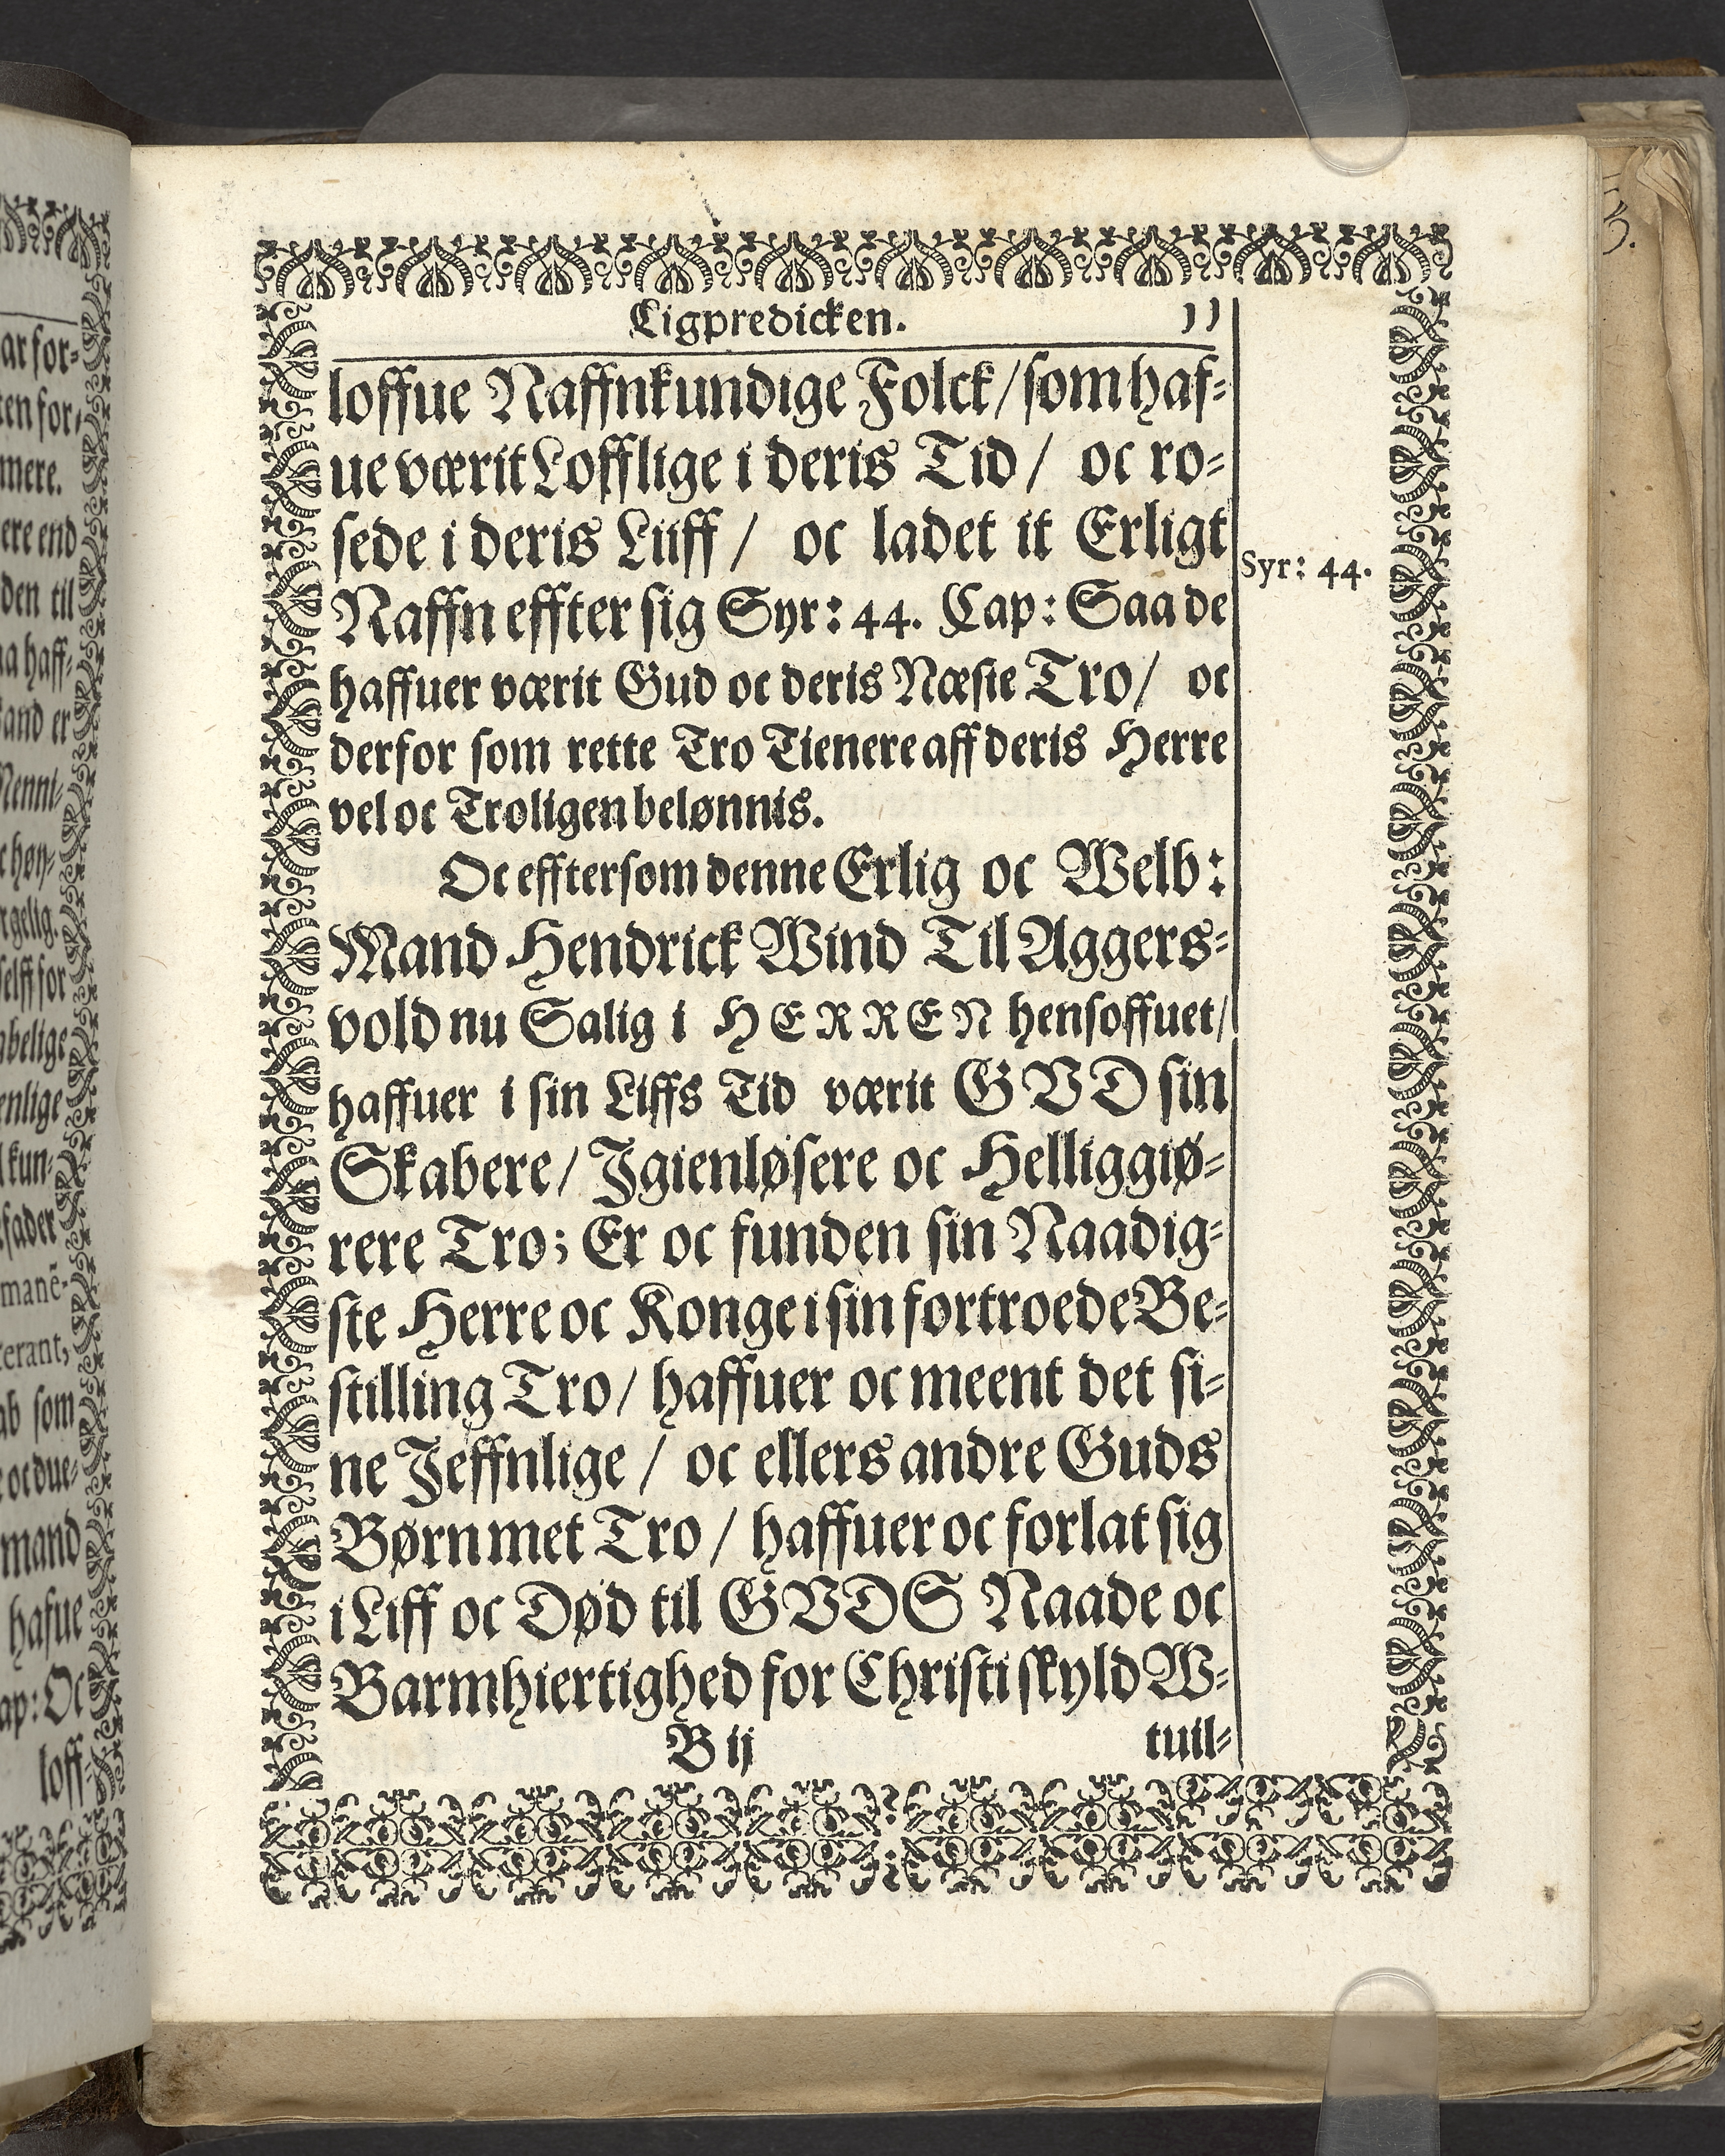 Ligpredicken. 11
loffue Naffnkundige Folck/ som haf-
ue værit Lofflige i deris Tid/ oc ro-
sede i deris Liiff/ oc ladet it Erligt
Naffn effter sig Syr: 44. Cap: Saa de
Syr: 44.
haffuer værit Gud oc deris Næste Tro/ oc
derfor som rette Tro Tienere aff deris Herre
vel oc Troligen belønnis.
Oc efftersom denne Erlig oc Welb:
Mand Hendrick Wind Til Aggers-
vold nu Salig i HERREN hensoffuet/
haffuer i sin Liffs Tid værit GVD sin
Skabere/ Igienløsere oc Helliggiø-
rere Tro; Er oc funden sin Naadig-
ste Herre oc Konge i sin fortroede Be-
stilling Tro/ haffuer oc meent det si-
ne Jeffnlige/ oc ellers andre Guds
Børn met Tro/ haffuer oc forlat sig
i Liff oc Død til GVDS Naade oc
Barmhiertighed for Christi skyld W-
B ij tuil-